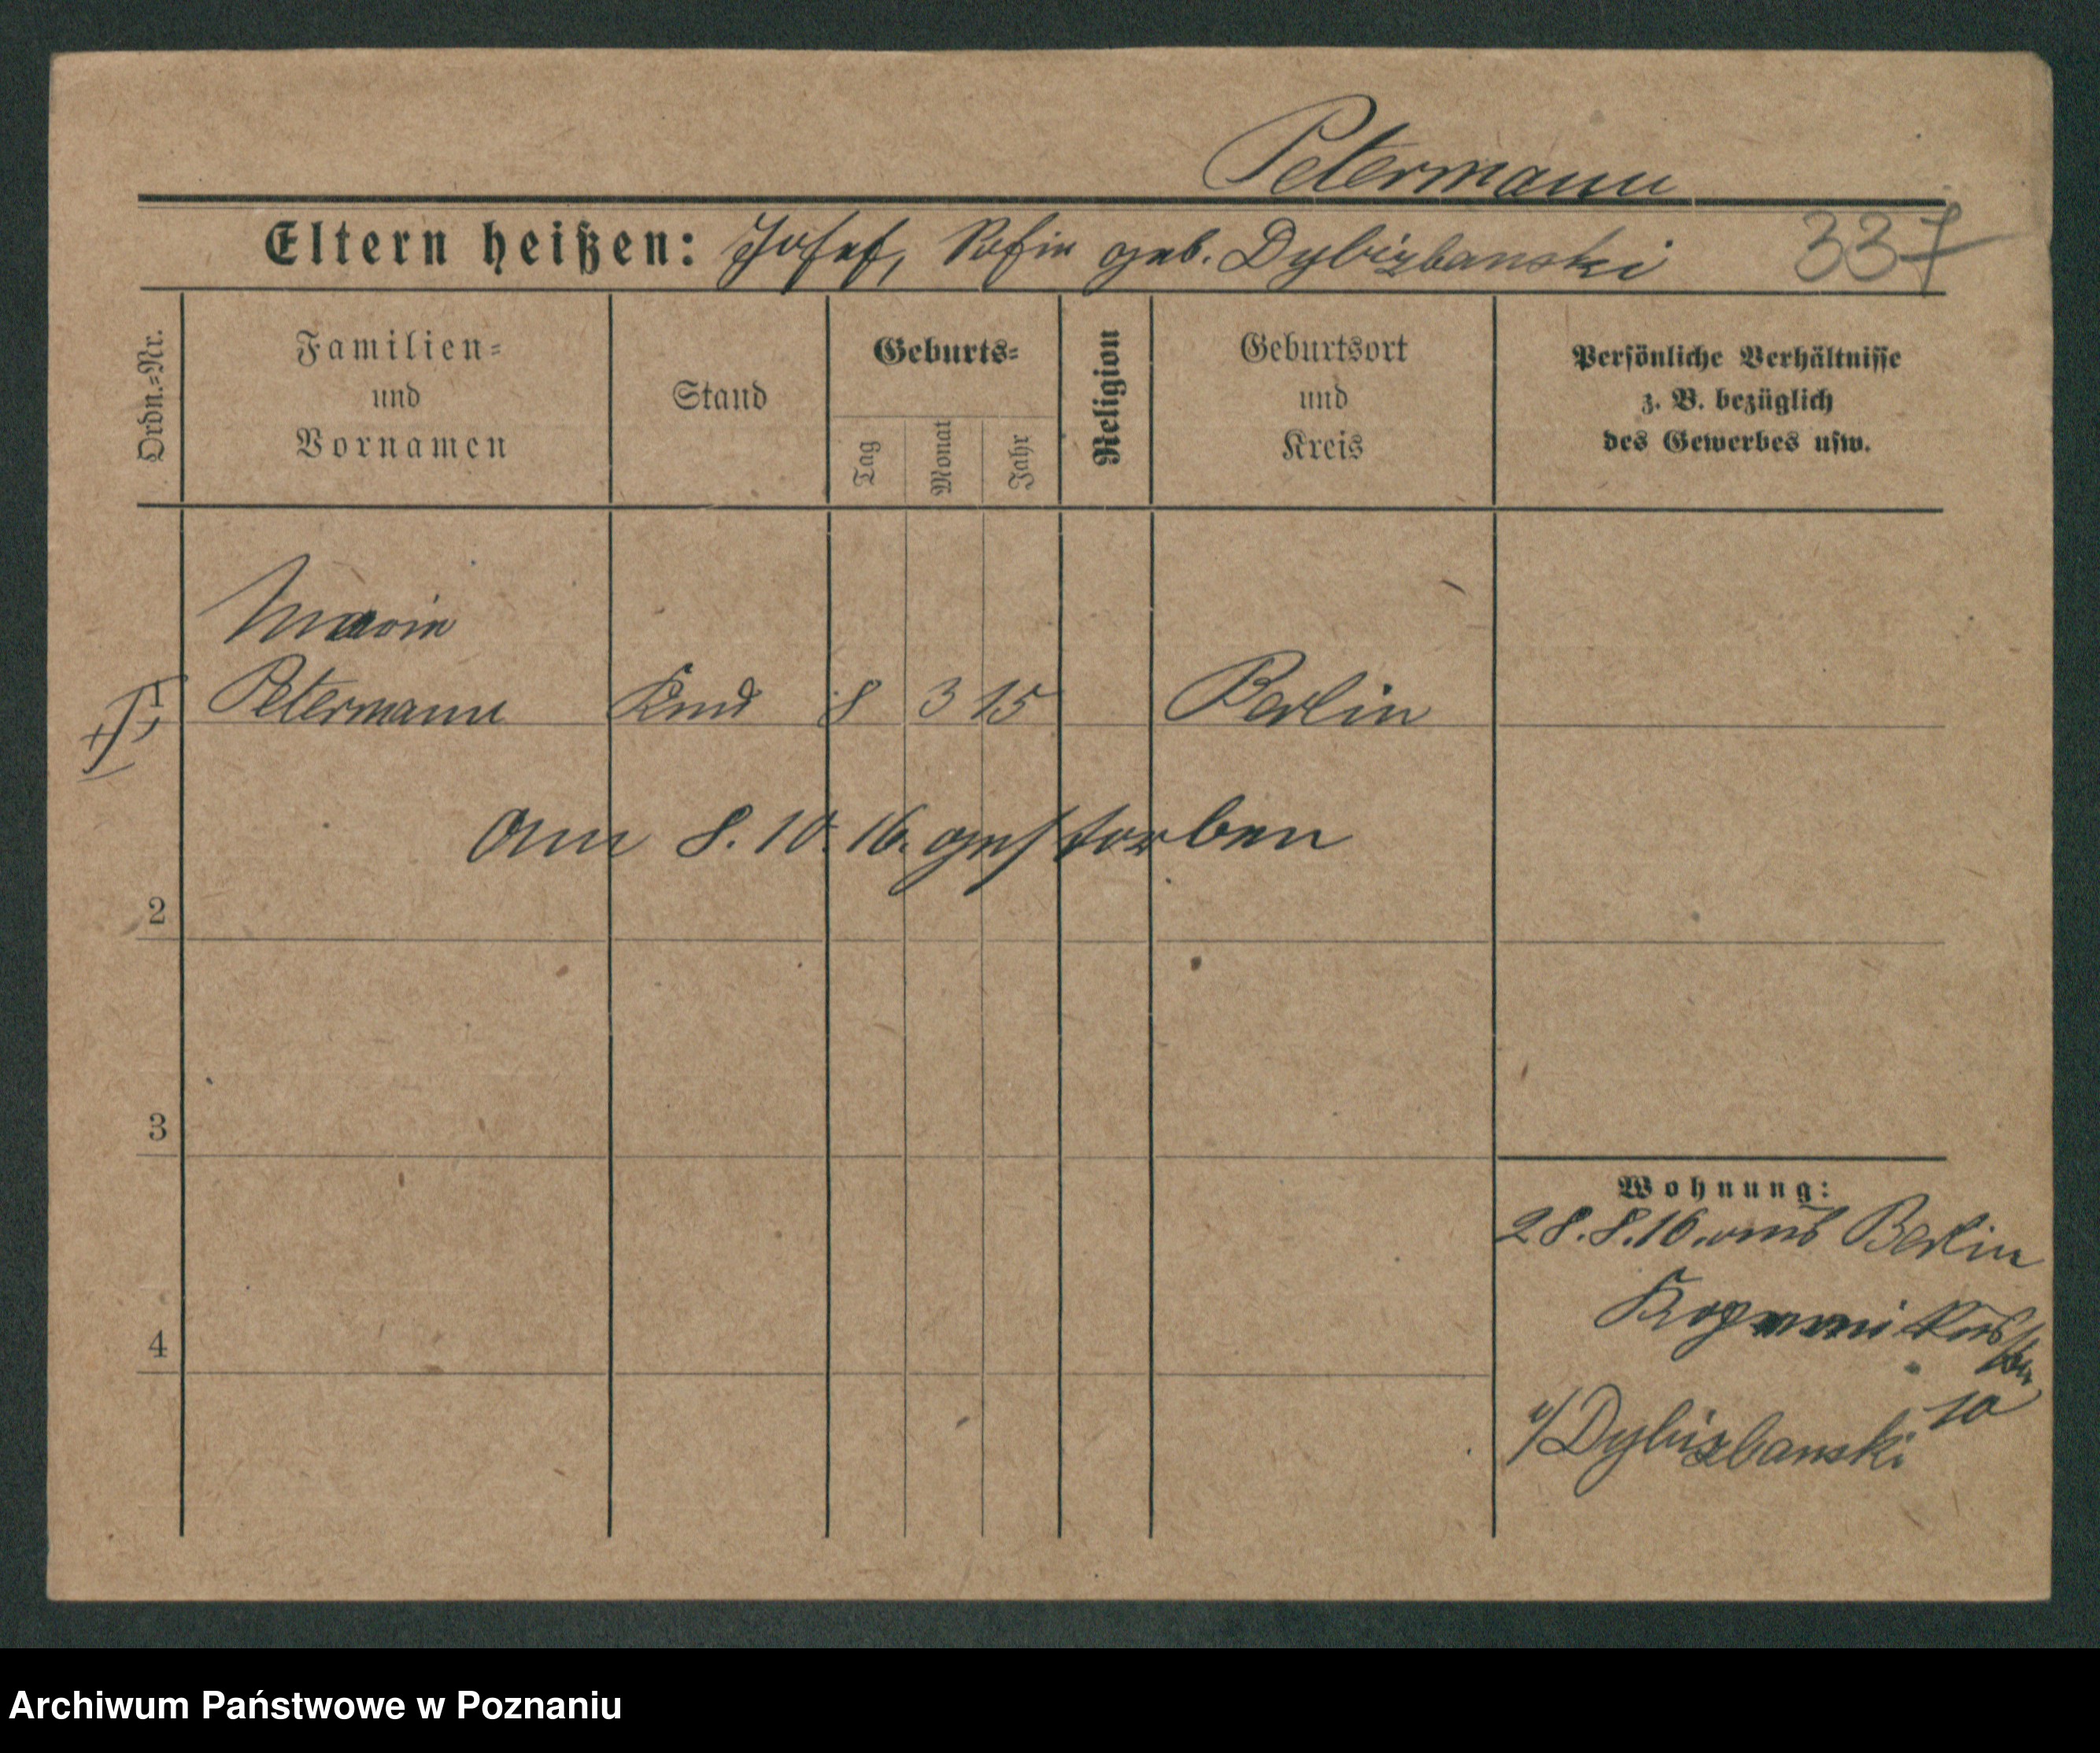 Petermann
Eltern heißen: Josef, Sofie geb. Dybizbanski 337
Ordn.=Nr.
Familien=
und
Vornamen
Stand
Geburts=
Tag
Monat
Jahr
Religion
Geburtsort
und
Kreis
Persönliche Verhältnisse
z. B. bezüglich
des Gewerbes usw.
Marie
1 Petermann Kind 8 3 15 Berlin
am 8.10.16. gestorben
2
3
4
Wohnung:
28.8.16. aus Berlin
10
b/ Dybizbanski
Archiwum Państwowe w Poznaniu